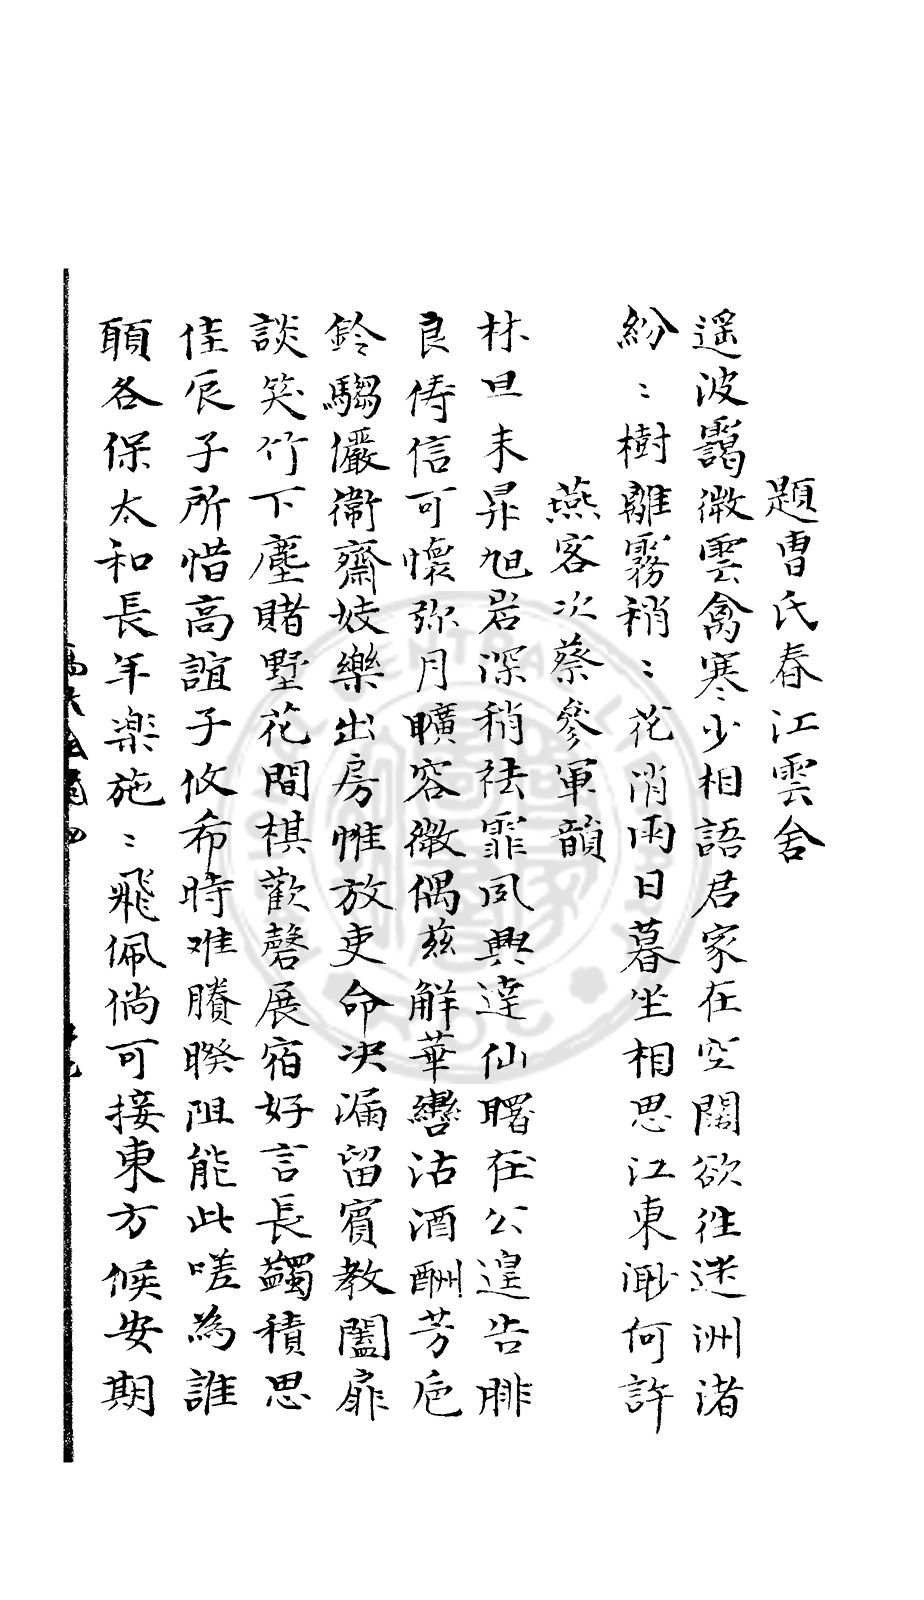 題曹氏春江雲舍
遥波靄微雲禽寒少相語君家在空闊欲往迷洲渚
紛〻樹離霧稍〻花消雨日暮坐相思江東渺何許
燕客次蔡參軍韻
林旦未昇旭岩深稍祛霏夙興達仙曙在公遑告腓
良儔信可懷弥月曠容徽偶茲解華轡沽酒酬芳卮
鈴騶儼衛齋妓樂出房帷放吏命决漏留賓教闔扉
談笑竹下塵賭墅花間棋歡罄展宿好言長蠲積思
佳辰子所惜高誼子攸希時难賸暌阻能此嗟為誰
頋各保太和長年楽施〻飛佩倘可接東方候安期